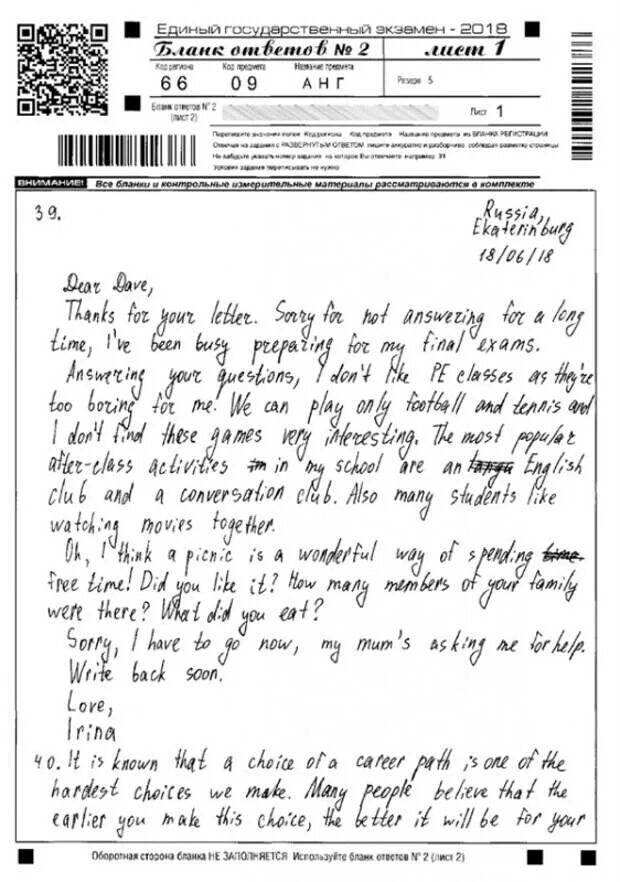 Единый государственный экзамен - 2018
Бланк ответов № 2 лист 1
Код региона Код предмета Название предмета
66 09 АНГ
Резерв 5
Бланк ответов № 2
(лист 2)
Лист 1
Перепишите значения полей Код региона Код предмета Название предмета из БЛАНКА РЕГИСТРАЦИИ
Отвечая на задания с РАЗВЕРНУТЫМ ОТВЕТОМ пишите аккуратно и разборчиво соблюдая разметку страницы
Не забудьте указать номер задания на которое Вы отвечаете например 31
Условия задания переписывать не нужно
ВНИМАНИЕ! Все бланки и контрольные измерительные материалы рассматриваются в комплекте
39.
Russia,
Ekaterinburg
18/06/18
Dear Dave,
Thanks for your letter. Sorry for not answering for a long
time, I've been busy preparing for my final exams.
Answering your questions, I don't like PE classes as they're
too boring for me. We can play only football and tennis and
I don't find these games very interesting. The most popular
after-class activities in my school are an English
club and a conversation club. Also many students like
watching movies together.
Oh, I think a picnic is a wonderful way of spending
free time! Did you like it? How many members of your family
were there? What did you eat?
Sorry, I have to go now, my mum's asking me for help.
Write back soon.
Love,
Irina
40. It is known that a choice of a career path is one of the
hardest choices we make. Many people believe that the
earlier you make this choice, the better it will be for your
Оборотная сторона бланка НЕ ЗАПОЛНЯЕТСЯ Используйте бланк ответов № 2 (лист 2)